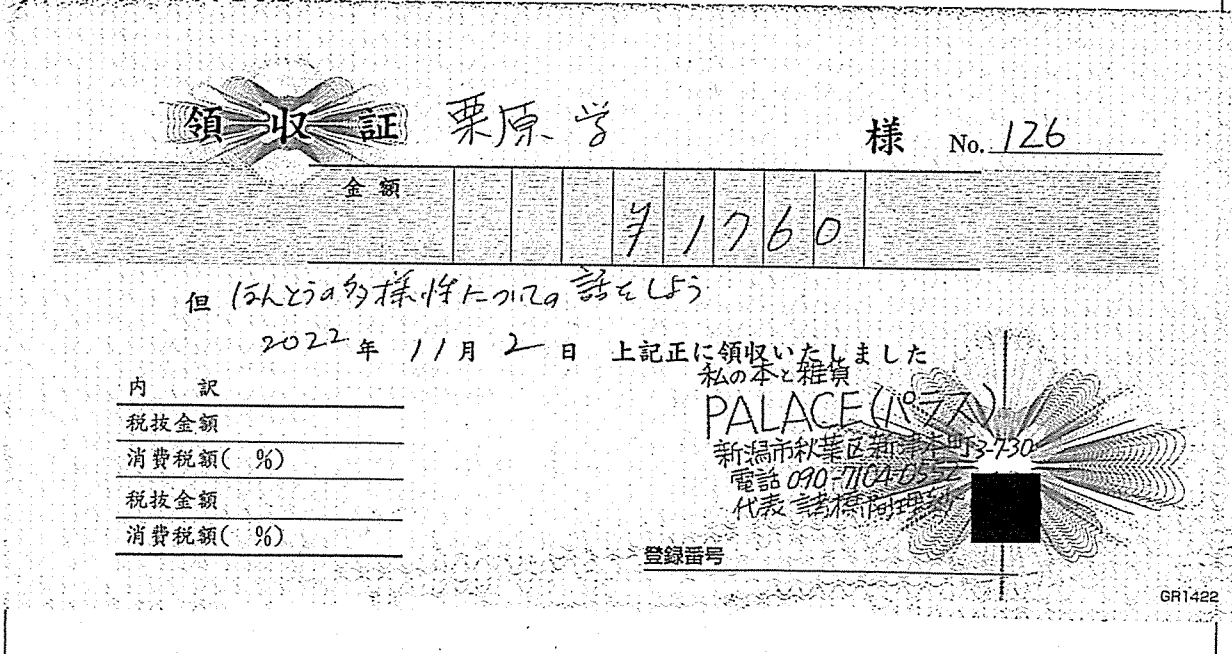 領収証 栗原 学 様 No. 126
金額 ¥1760
但 ほんとうの多様性についての話をしよう
2022年 11月 2日 上記正に領収いたしました
内 訳
税抜金額
消費税額( %)
税抜金額
消費税額( %)
私の本と雑貨
PALACE(パラス)
新潟市秋葉区新津本町3-7-30
電話 090-7104-0552
代表 諸橋
登録番号
GR1422